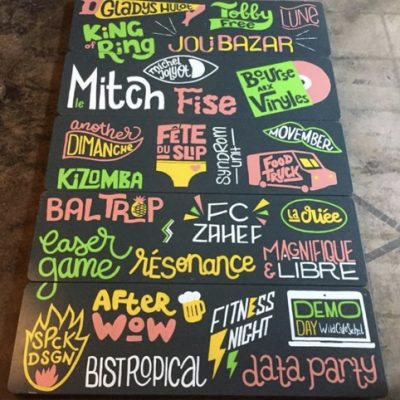 GLADYS HULOT
Tobby
Free
LUNE
KING
of
RING
JOLI BAZAR
le Mitch
michel
jolyot
Fise
Bourse
aux
Vinyles
another
DIMANCHE
FÊTE
DU SLIP
SYNDROM
UNIT
MOVEMBER
FOOD
TRUCK
KIZOMBA
BALTROP
FC
ZAHEF
La
criée
laser
game
résonance
MAGNIFIQUE
& LIBRE
SPCK
DSGN
AFTER
WOW
FITNESS
NIGHT
DEMO
DAY
WildCodeSchool
BISTROPICAL
data party